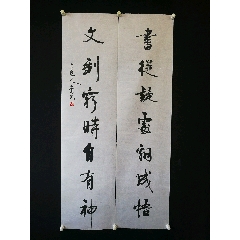 書從疑處翻成悟
文到窮時自有神